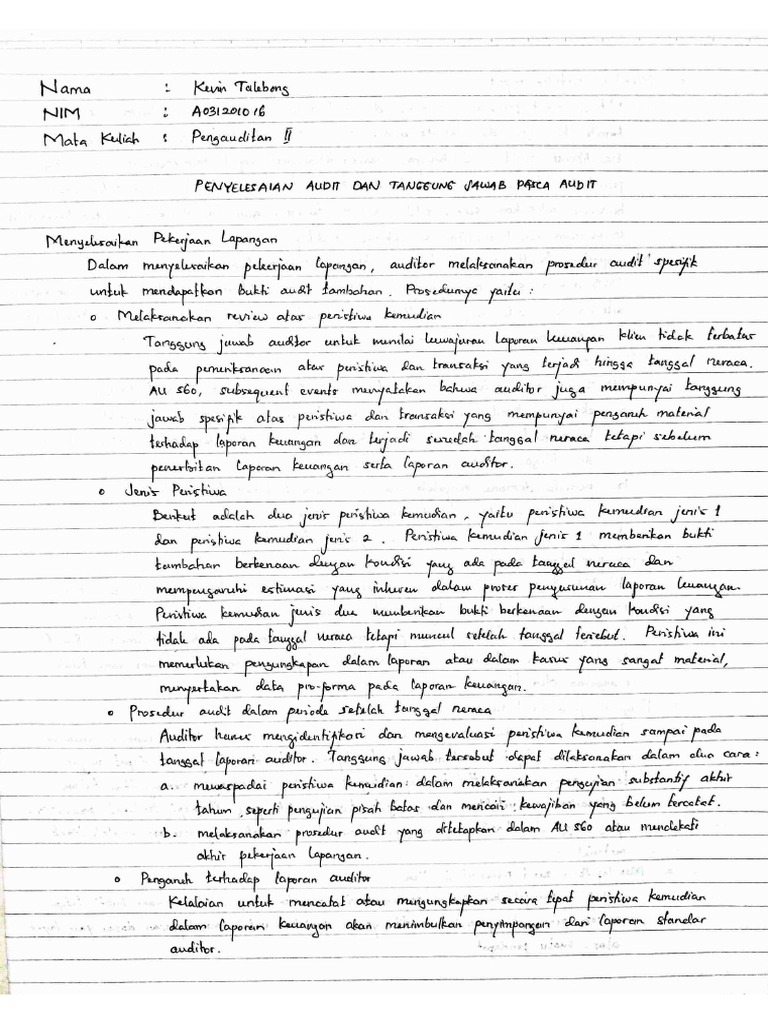 Nama : Kevin Talebong
NIM : A031201016
Mata Kuliah : Pengauditan II
PENYELESAIAN AUDIT DAN TANGGUNG JAWAB PASCA AUDIT
Menyelesaikan Pekerjaan Lapangan
Dalam menyelesaikan pekerjaan lapangan, auditor melaksanakan prosedur audit spesifik
untuk mendapatkan bukti audit tambahan. Prosedurnya yaitu :
o Melaksanakan review atas peristiwa kemudian
Tanggung jawab auditor untuk menilai kewajaran laporan keuangan klien tidak terbatas
pada pemeriksanaan atas peristiwa dan transaksi yang terjadi hingga tanggal neraca.
AU 560, subsequent events menyatakan bahwa auditor juga mempunyai tanggung
jawab spesifik atas peristiwa dan transaksi yang mempunyai pengaruh material
terhadap laporan keuangan dan terjadi sesudah tanggal neraca tetapi sebelum
penerbitan laporan keuangan serta laporan auditor.
o Jenis Peristiwa
Berikut adalah dua jenis peristiwa kemudian, yaitu peristiwa kemudian jenis 1
dan peristiwa kemudian jenis 2. Peristiwa kemudian jenis 1 memberikan bukti
tambahan berkenaan dengan kondisi yang ada pada tanggal neraca dan
mempengaruhi estimasi yang inheren dalam proses penyusunan laporan keuangan.
Peristiwa kemudian jenis dua memberikan bukti berkenaan dengan kondisi yang
tidak ada pada tanggal neraca tetapi muncul setelah tanggal tersebut. Peristiwa ini
memerlukan pengungkapan dalam laporan atau dalam kasus yang sangat material,
menyertakan data pro-forma pada laporan keuangan.
o Prosedur audit dalam periode setelah tanggal neraca
Auditor harus mengidentifikasi dan mengevaluasi peristiwa kemudian sampai pada
tanggal laporan auditor. Tanggung jawab tersebut dapat dilaksanakan dalam dua cara :
a. mewaspadai peristiwa kemudian dalam melaksanakan pengujian substantif akhir
tahun, seperti pengujian pisah batas dan mencari kewajiban yang belum tercatat.
b. melaksanakan prosedur audit yang ditetapkan dalam AU 560 atau mendekati
akhir pekerjaan lapangan.
o Pengaruh terhadap laporan auditor
Kelalaian untuk mencatat atau mengungkapkan secara tepat peristiwa kemudian
dalam laporan keuangan akan menimbulkan penyimpangan dari laporan standar
auditor.